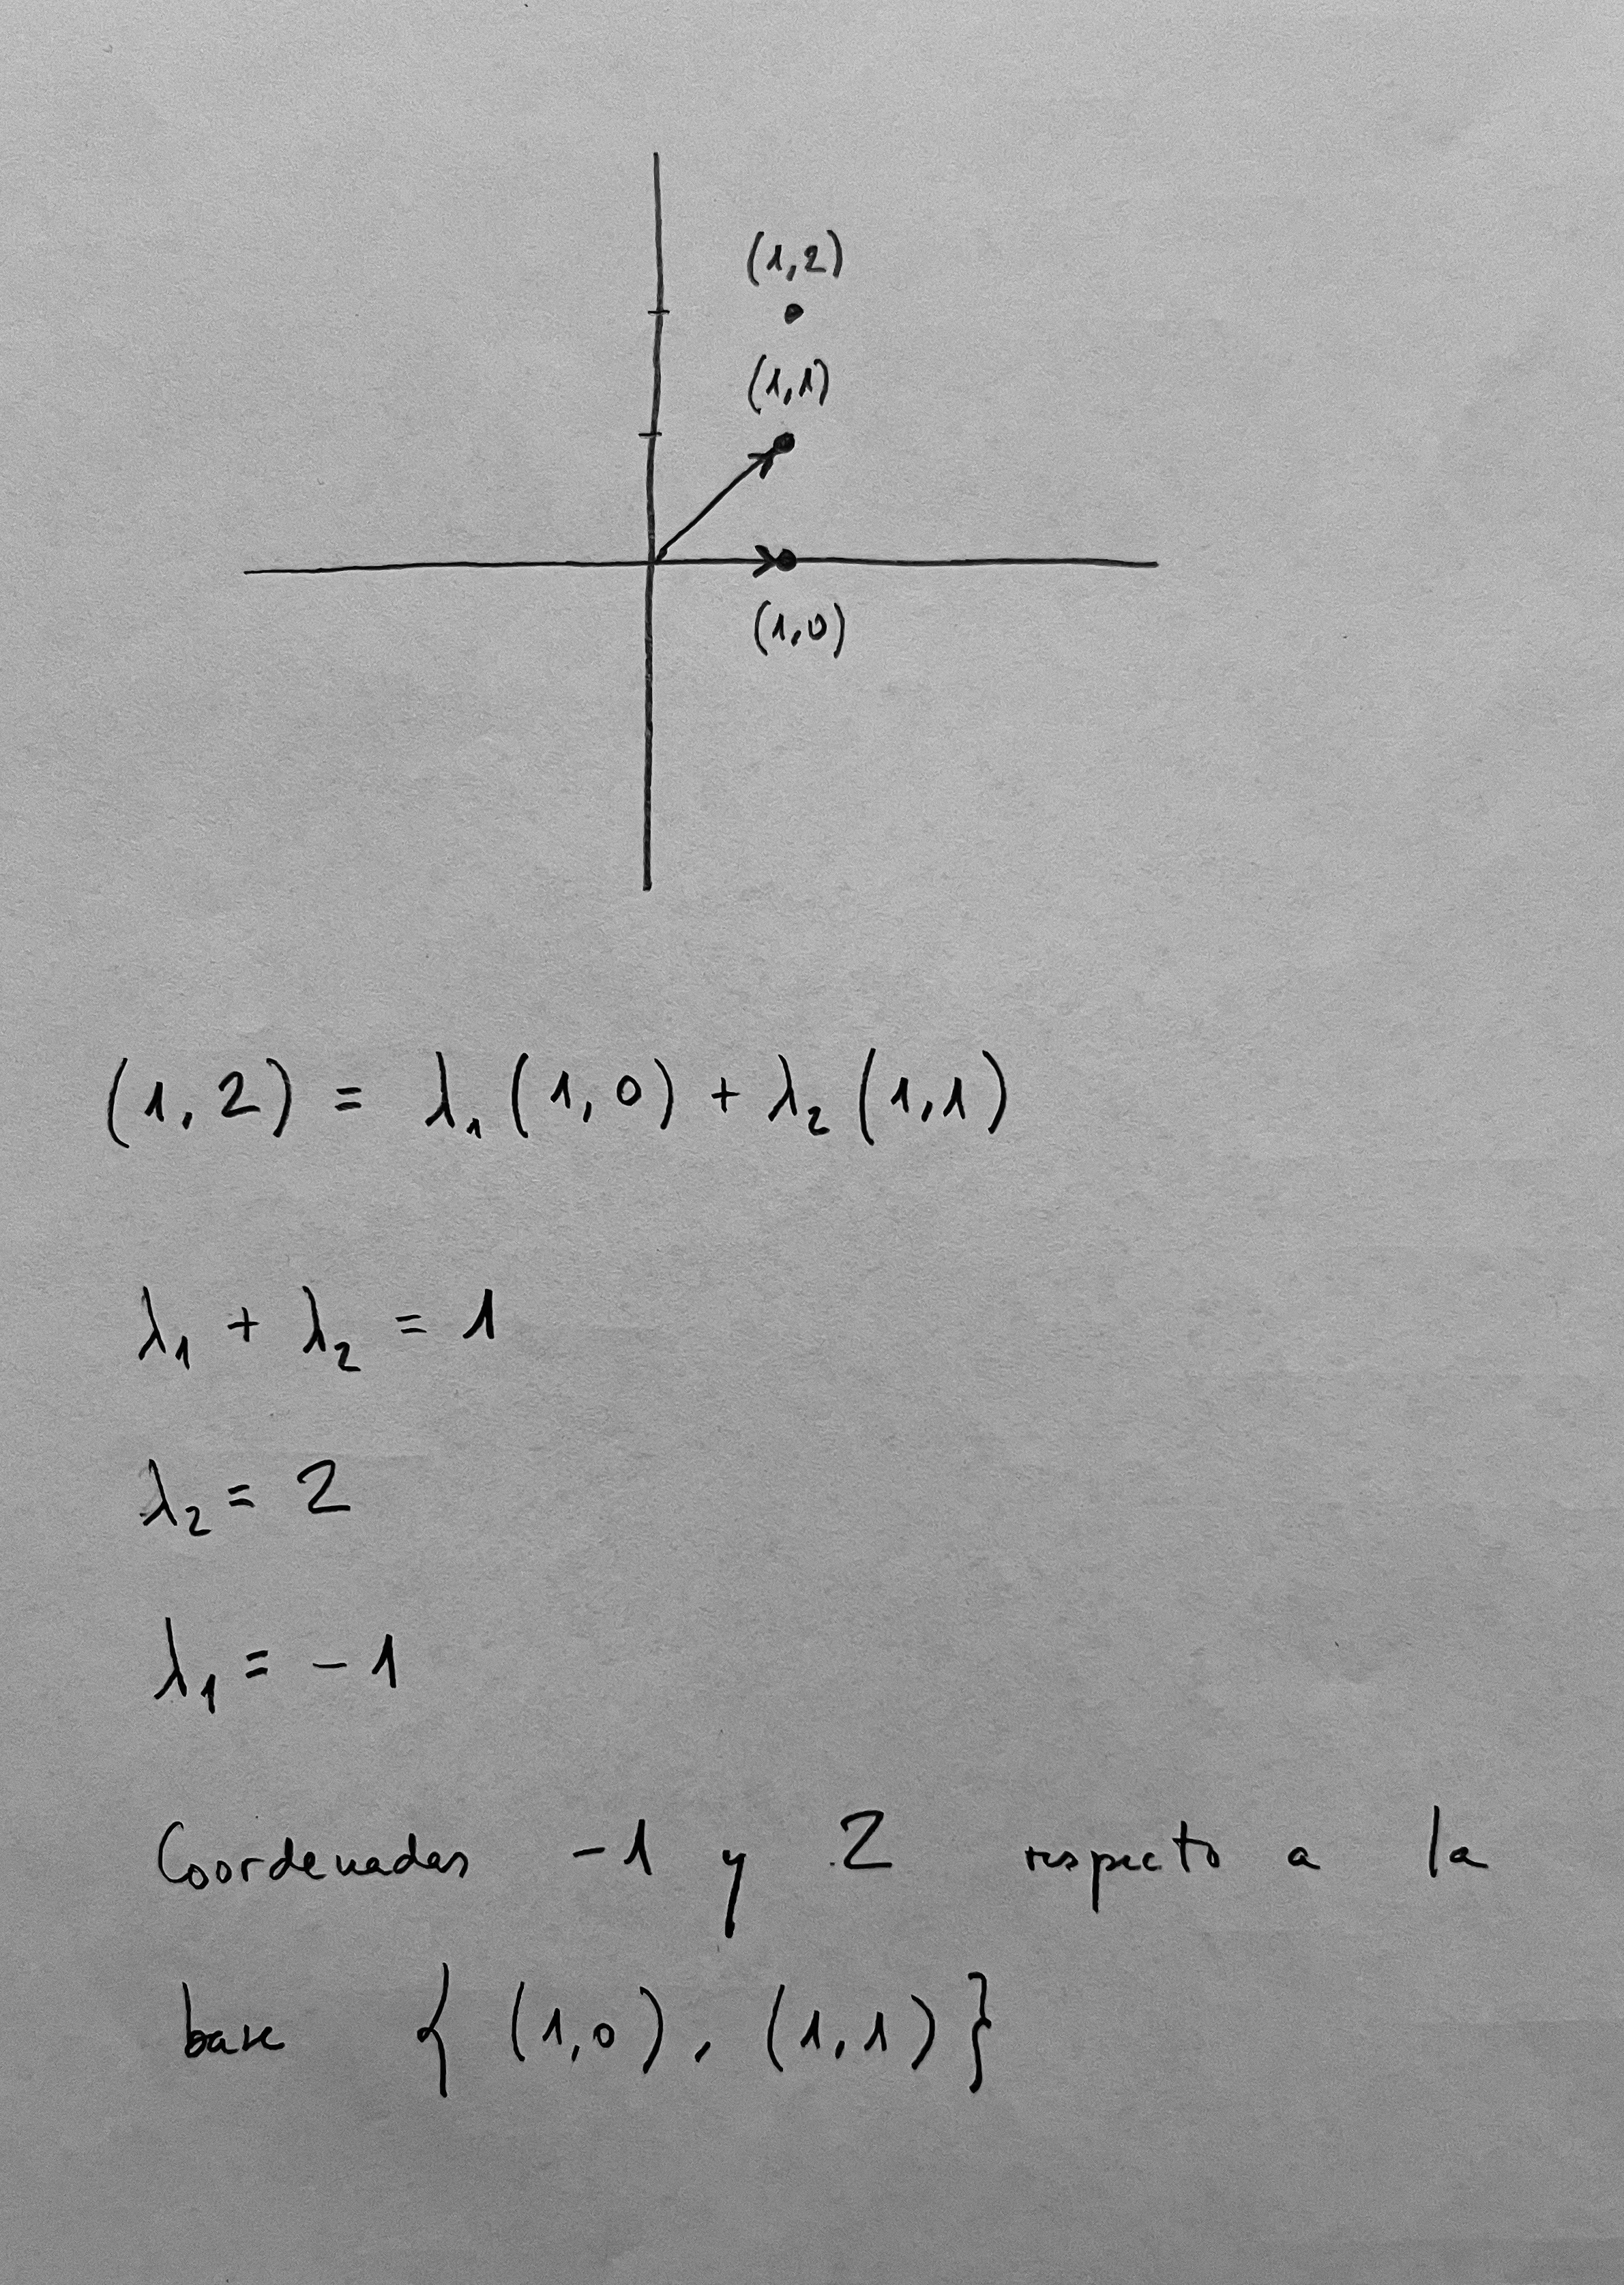 (1,2)
(1,1)
(1,0)
(1,2) = λ₁(1,0) + λ₂(1,1)
λ₁ + λ₂ = 1
λ₂ = 2
λ₁ = -1
Coordenadas -1 y 2 respecto a la
base { (1,0), (1,1) }